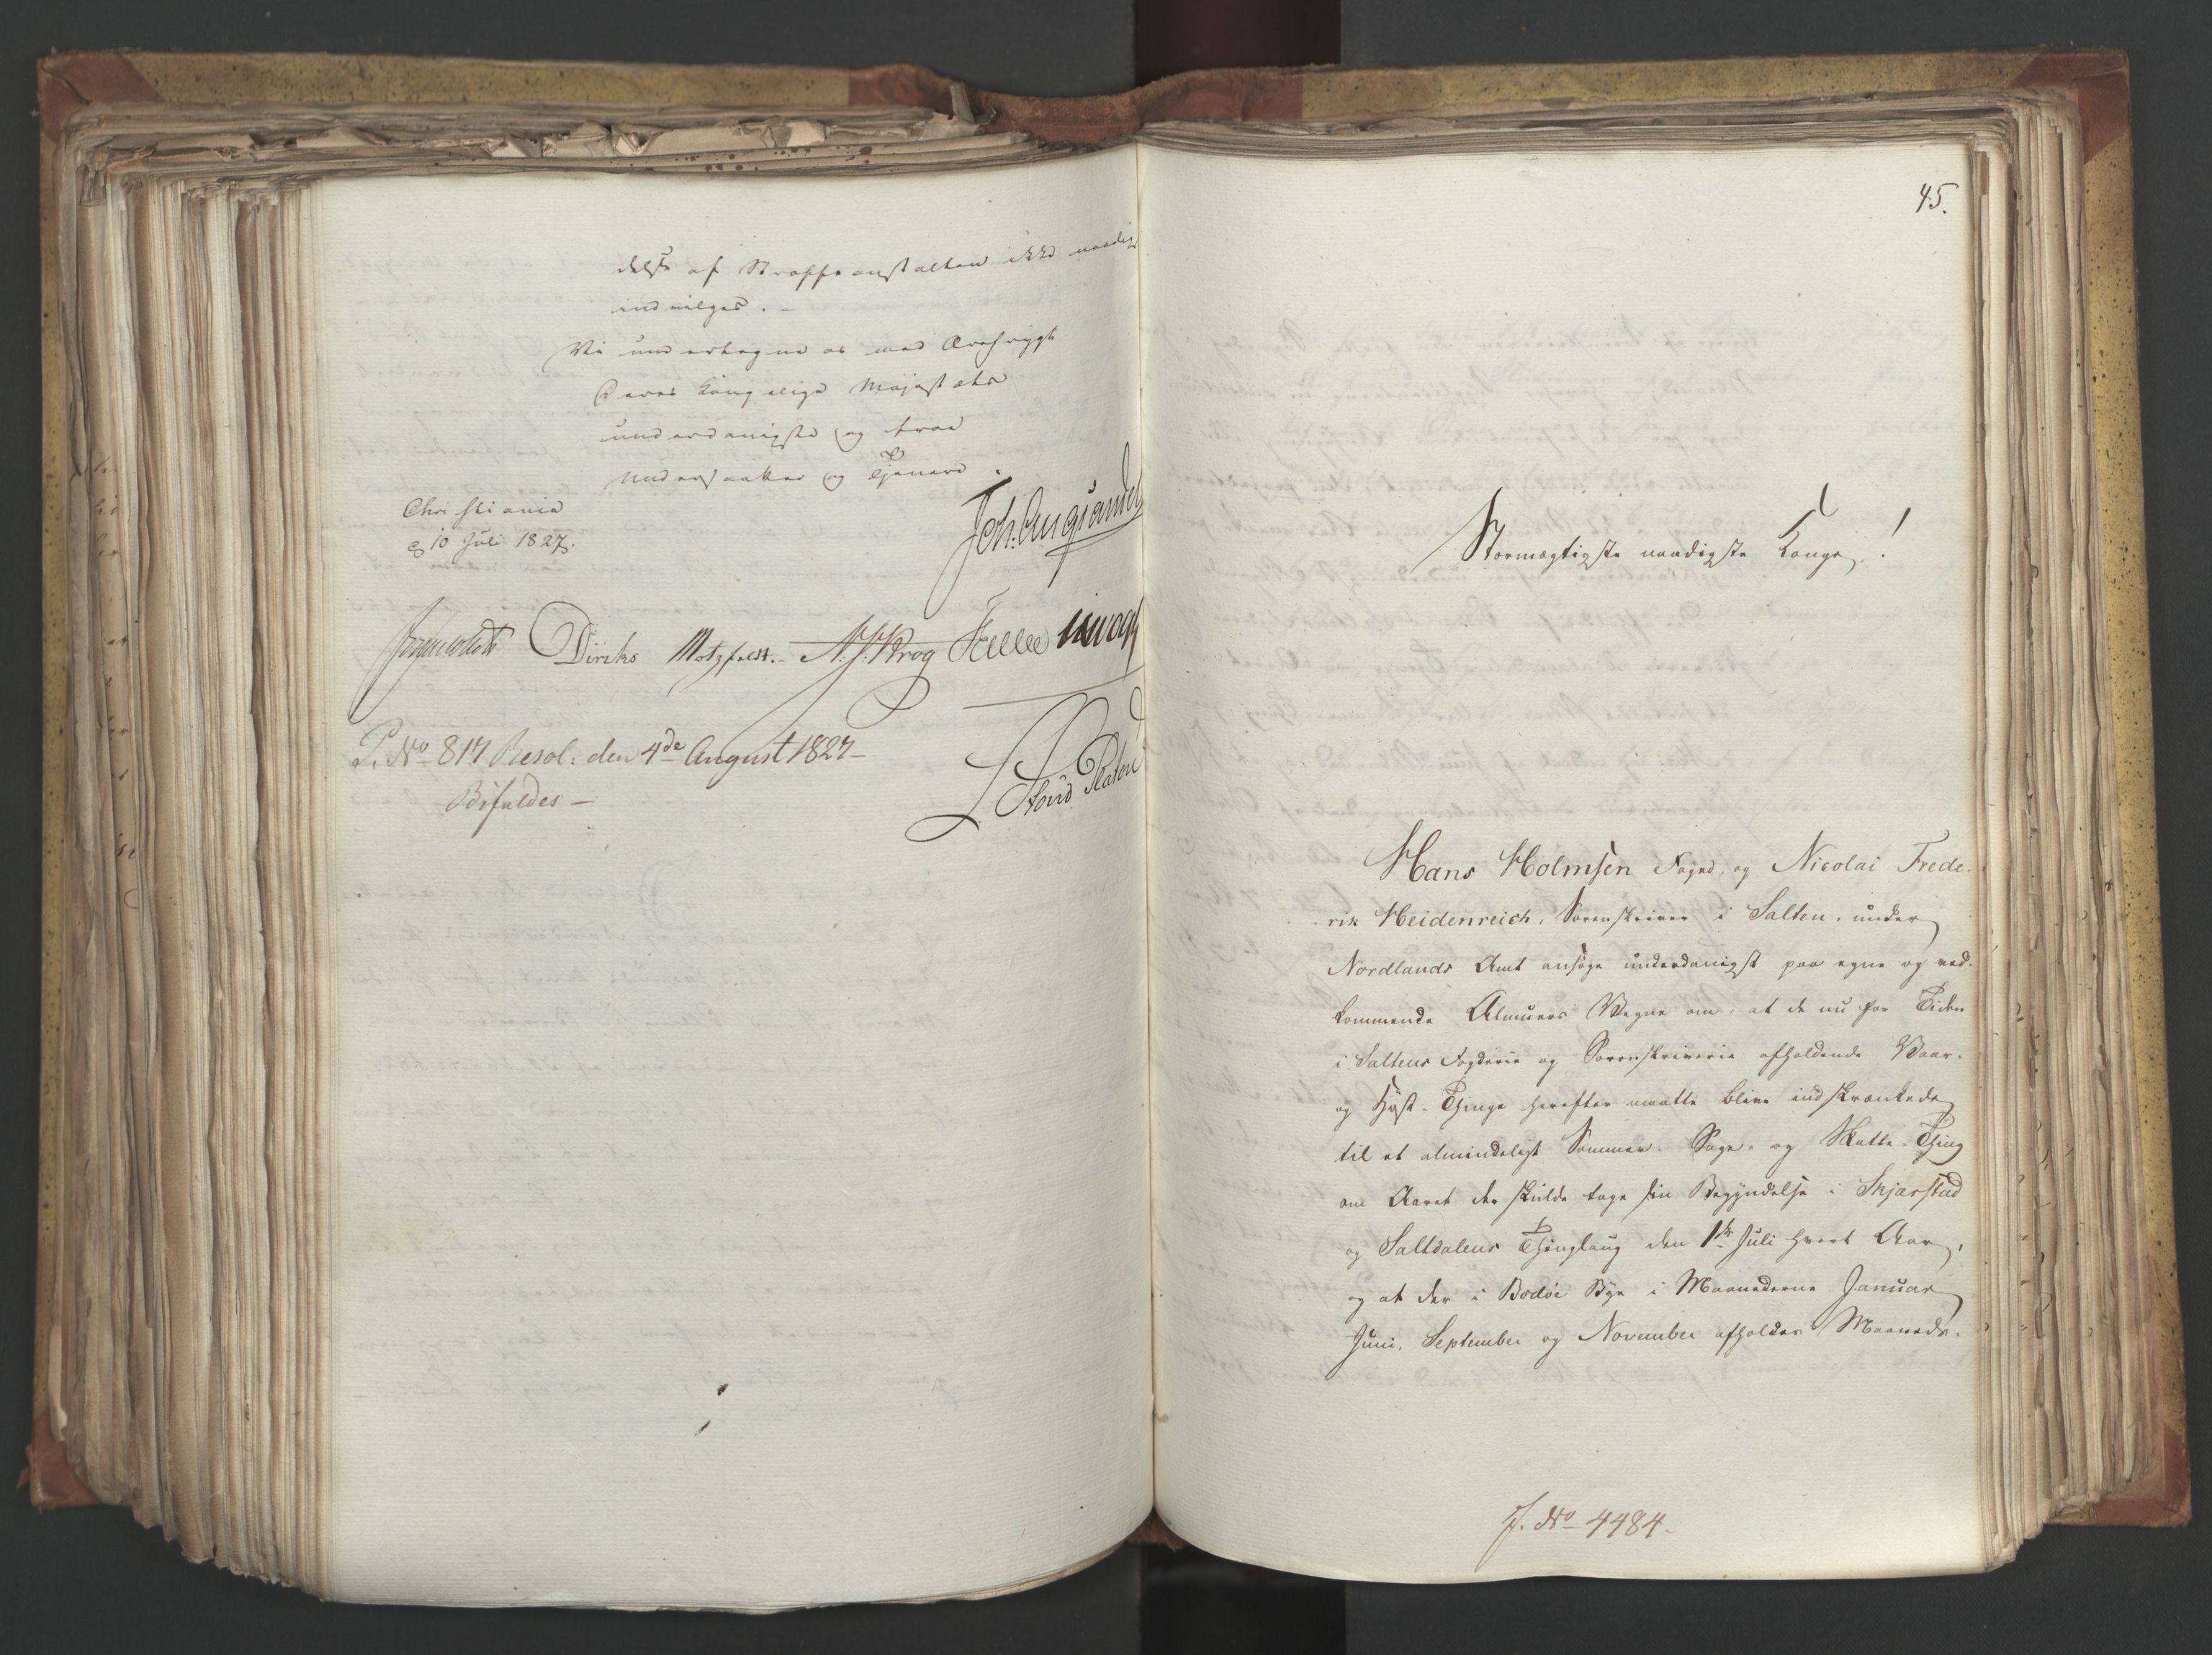 delse af Straffeanstalten ikke naadigst
indvilges. –
Vi undertegne os med Ærefrygt
Deres Kongelige Majestæts
underdanigste og troe
Undersaatter og Tjenere
Christiania
d 10 Juli 1827.
Joh. Aug. Sandels
Diriks Motzfeldt. N. J. Krog Fasting
P. No 817 Resol: den 4de August 1827 –
Bifaldes –
45.
Stormægtigste naadigste Konge!
Hans Holmsen Foged, og Nicolai Frede-
rik Heidenreich, Sorenskriver i Salten, under
Nordlands Amt ansøge underdanigst paa egne og ved-
kommende Almues Vegne om, at de nu for Tiden
i Saltens Fogderie og Sorenskriverie afholdende Vaar-
og Høst-Thinge herefter maatte blive indskrænkede
til et almindeligt Sommer- Sage- og Skatte-Thing
om Aaret der skulde tage sin Begyndelse i Skjærstad
og Saltdalens Thinglaug den 1ste Juli hvert Aar,
og at der i Bodøe Bye i Maanederne Januar
Juni, September og November afholdes Maaneds-
J. No 4484.